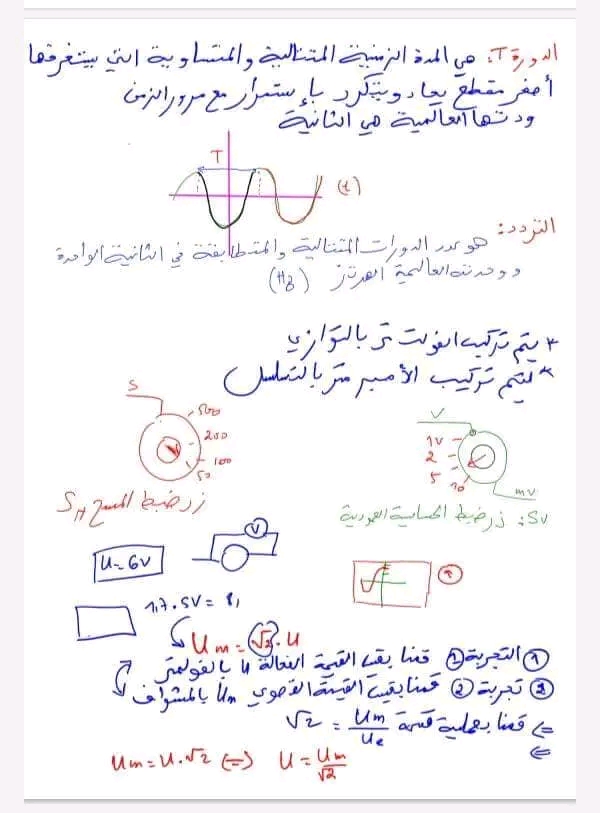 الدورة T: هي المدة الزمنية المتتالية والمتساوية التي يستغرقها
أصغر مقطع يعاد ويتكرر بإستمرار مع مرور الزمن
وحدتها العالمية هي الثانية
T
(t)
التردد:
هو عدد الدورات المتتالية والمتطابقة في الثانية الواحدة
ووحدته العالمية الهرتز (Hz)
* يتم تركيب الفولت متر بالتوازي
* يتم تركيب الأمبير متر بالتسلسل
S
500
200
100
50
زر ضبط المسح SH
V
1V
2
5
10
mV
SV: زر ضبط الحساسية العمودية
U = 6V
V
1,7 . SV =
Um = √2 . U
① التجربة ① قمنا بقياس القيمة الفعالة U بالفولمتر
② تجربة ② قمنا بقياس القيمة القصوى Um بالمشواف
=> قمنا بعملية قسمة Um/Ue = √2
Um = U . √2 <=> U = Um/√2